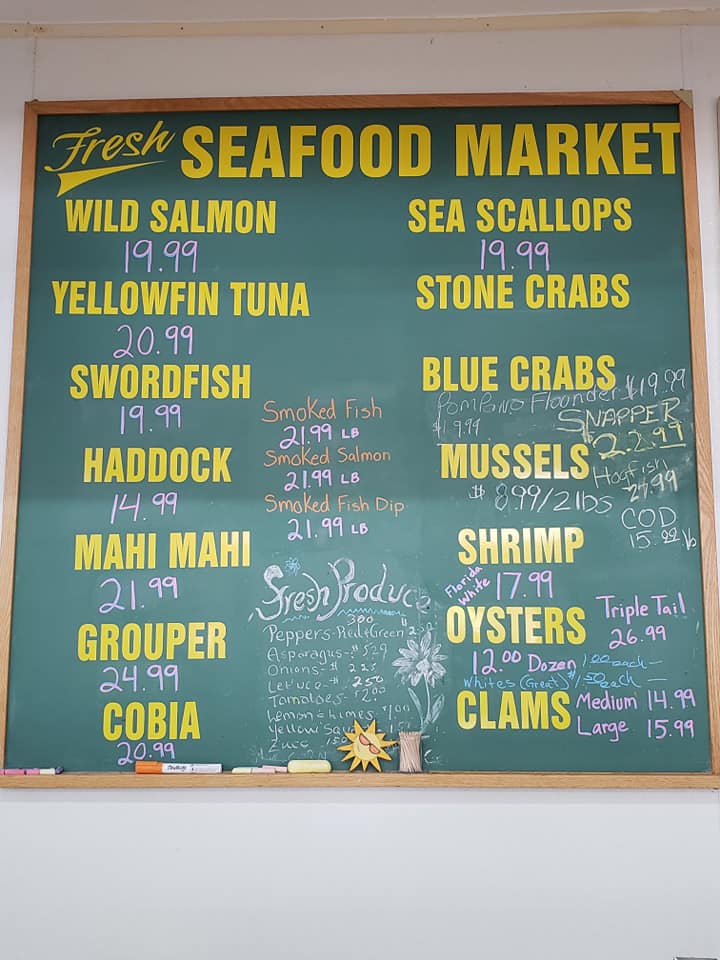 Fresh SEAFOOD MARKET
WILD SALMON
19.99
YELLOWFIN TUNA
20.99
SWORDFISH
19.99
HADDOCK
14.99
MAHI MAHI
21.99
GROUPER
24.99
COBIA
20.99
Smoked Fish
21.99 LB
Smoked Salmon
21.99 LB
Smoked Fish Dip
21.99 LB
Fresh Produce
Peppers-Red+Green
Asparagus-
Onions-
Lettuce- 2.50
Tomatoes- 2.00
Lemon + limes
Yellow
SEA SCALLOPS
19.99
STONE CRABS
BLUE CRABS
Pompano Flounder $19.99
$19.99
SNAPPER
$22.99
MUSSELS
$8.99/2lbs
Hogfish
27.99
COD
SHRIMP
Florida White 17.99
OYSTERS
12.00 Dozen
Whites (Great) each
Triple Tail
26.99
CLAMS
Medium 14.99
Large 15.99